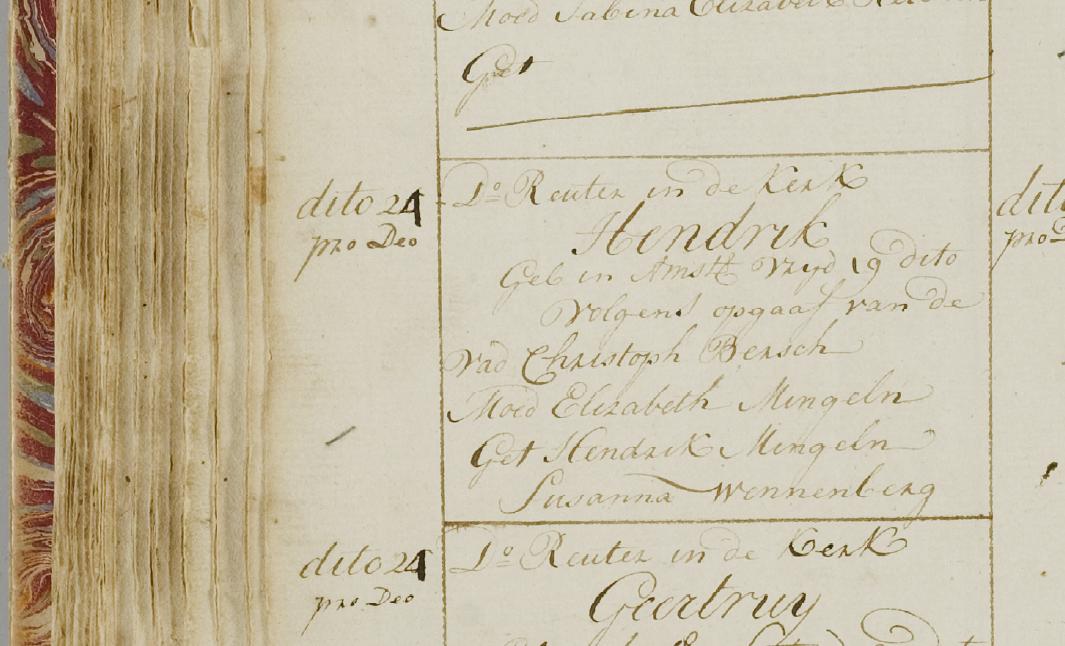 Moed Sabina Elizabeth
Get
dito 24
pro Deo
Do Reuter in de Kerk
Hendrik
Geb in Amstt Vryd 19 dito
Volgens opgaaf van de
Vad Christoph Bersch
Moed Elizabeth Mingeln
Get Hendrik Mingeln
Susanna Wennenberg
dito 24
pro Deo
Do Reuter in de Kerk
Geertruy
dit
pro D